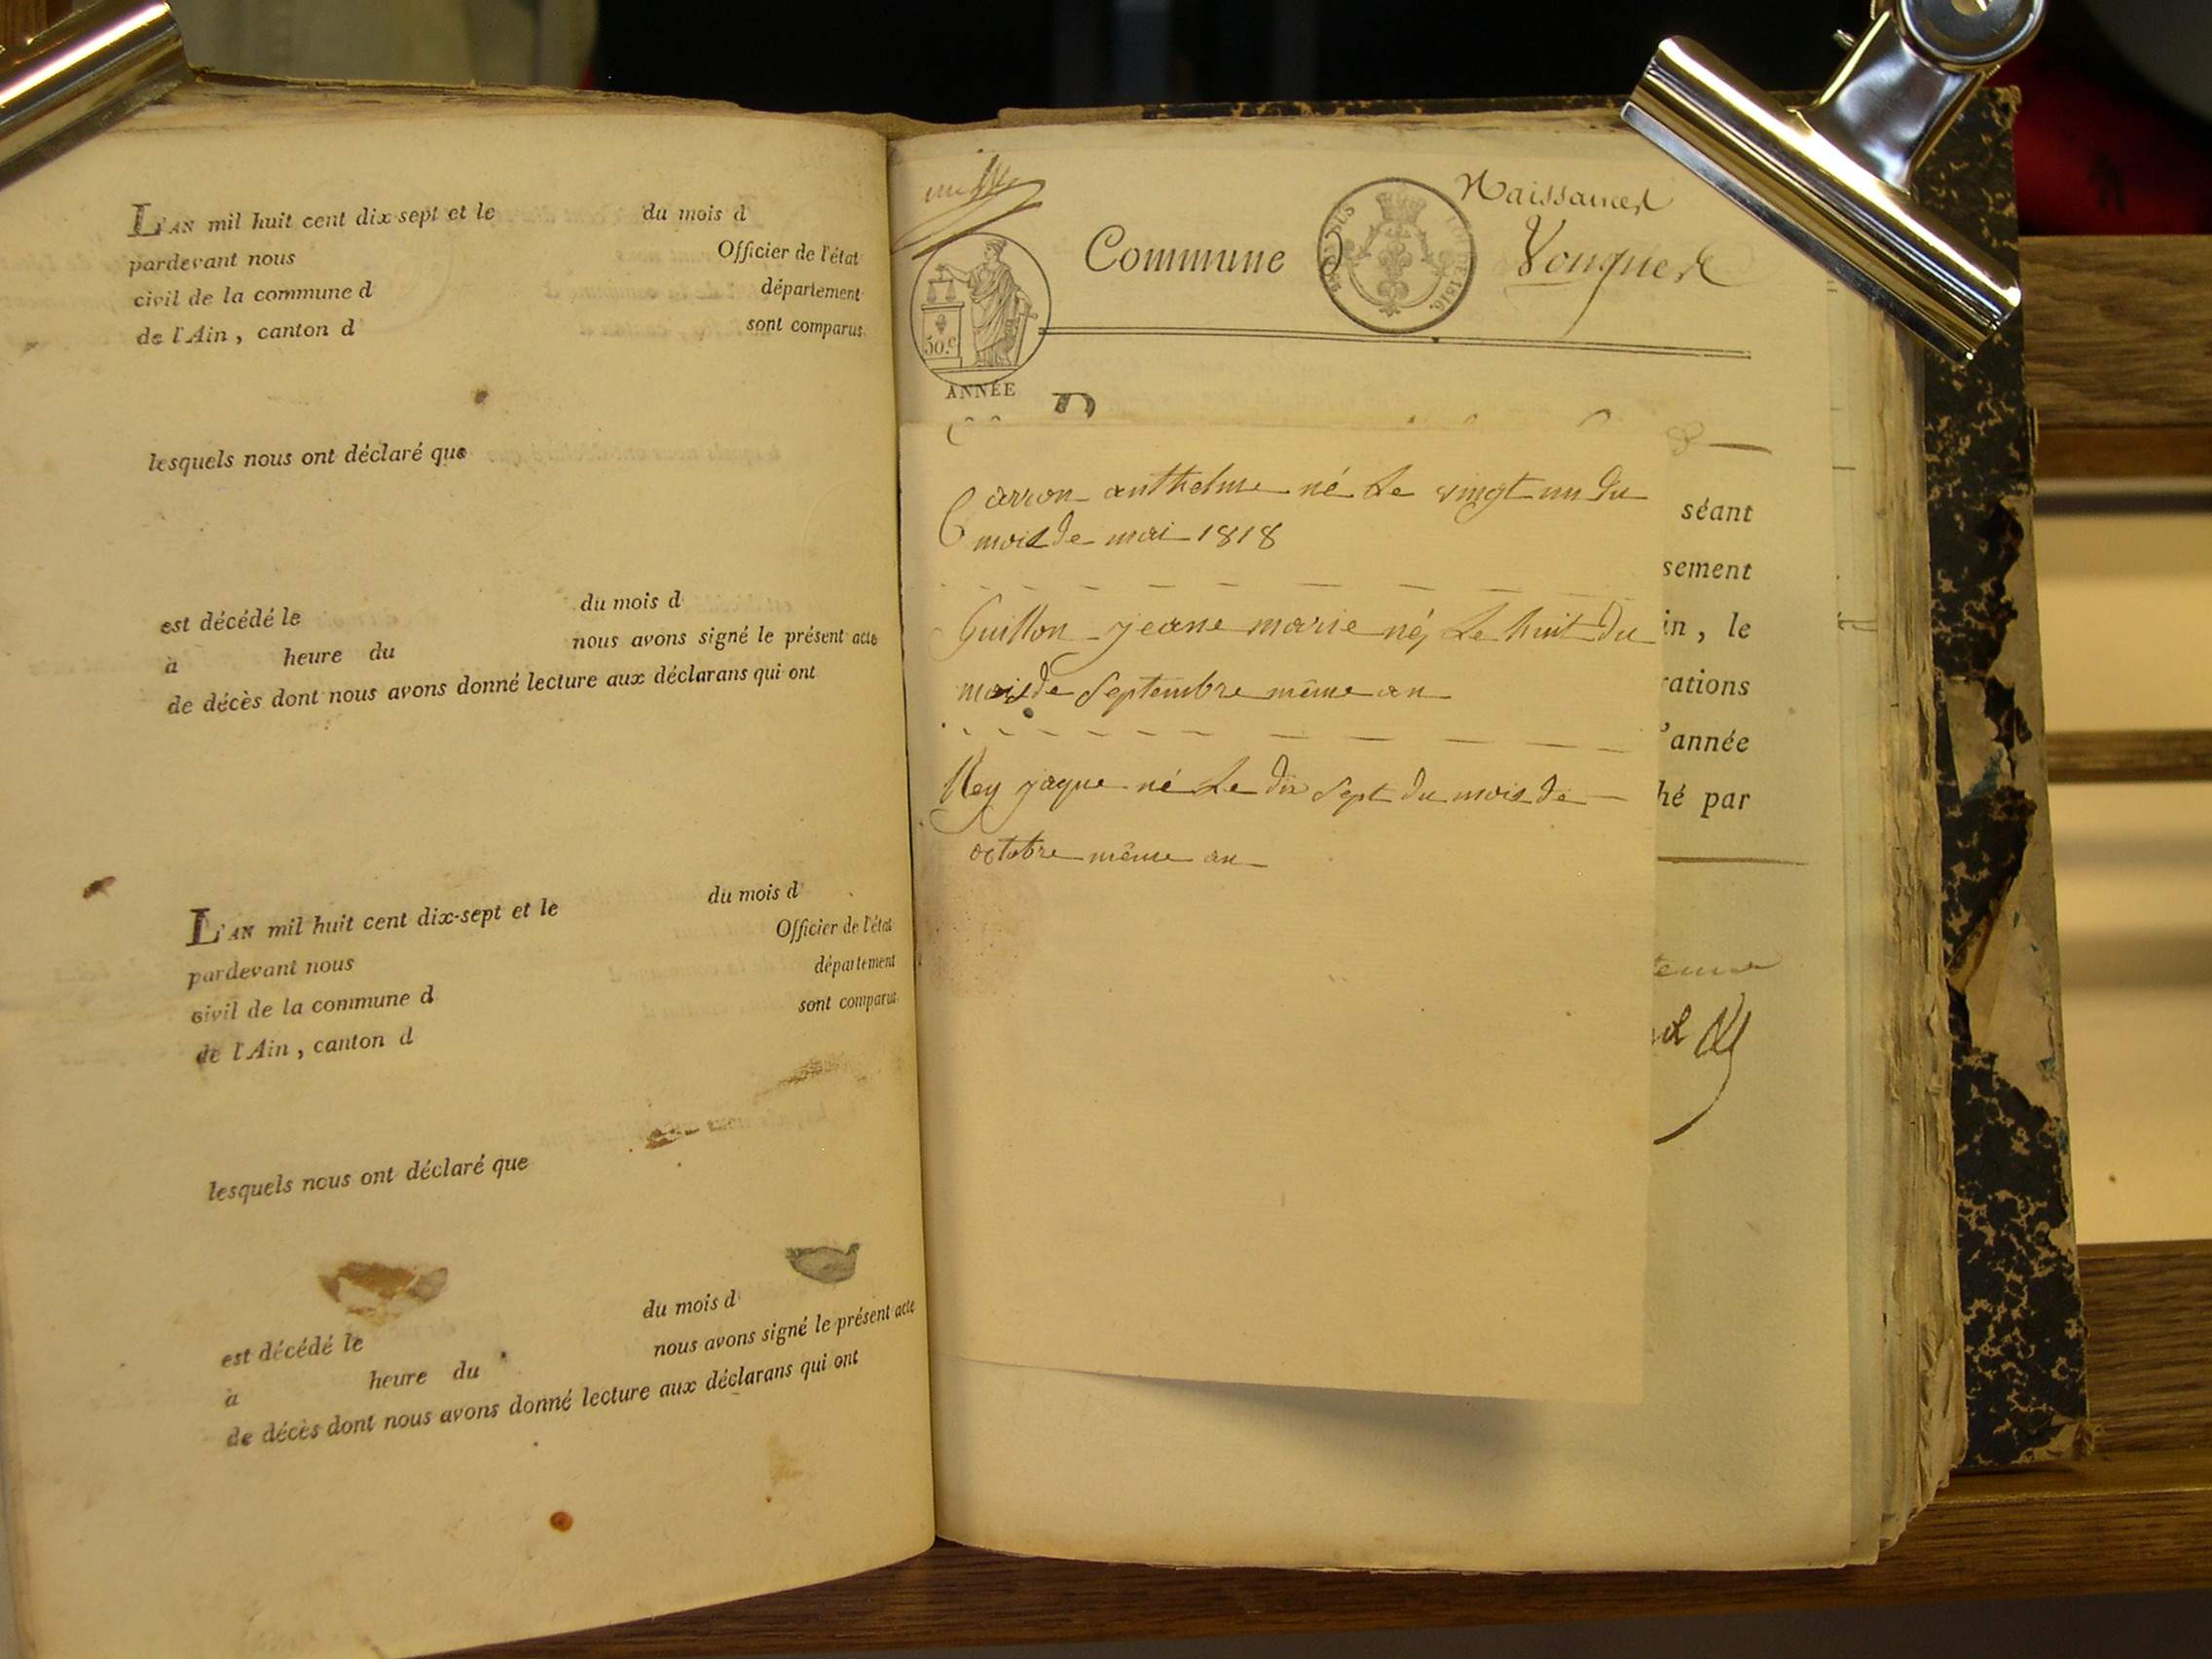 L'AN mil huit cent dix-sept et le du mois d
pardevant nous Officier de l'état
civil de la commune d département
de l'Ain, canton d sont comparus
lesquels nous ont déclaré que
est décédé le du mois d
à heure du nous avons signé le présent acte
de décès dont nous avons donné lecture aux déclarans qui ont
L'AN mil huit cent dix-sept et le du mois d
pardevant nous Officier de l'état
civil de la commune d département
de l'Ain, canton d sont comparus
lesquels nous ont déclaré que
est décédé le du mois d
à heure du nous avons signé le présent acte
de décès dont nous avons donné lecture aux déclarans qui ont
Naissances
Commune d
DE 1816.
50.c
ANNÉE
Carron anthelme né Le vingt un du
mois de mai 1818
Guillon jeane marie né Le huit du
mois de Septembre même an
Rey jaque né Le dix Sept du mois de
octobre même an
séant
sement
in, le
rations
'année
hé par